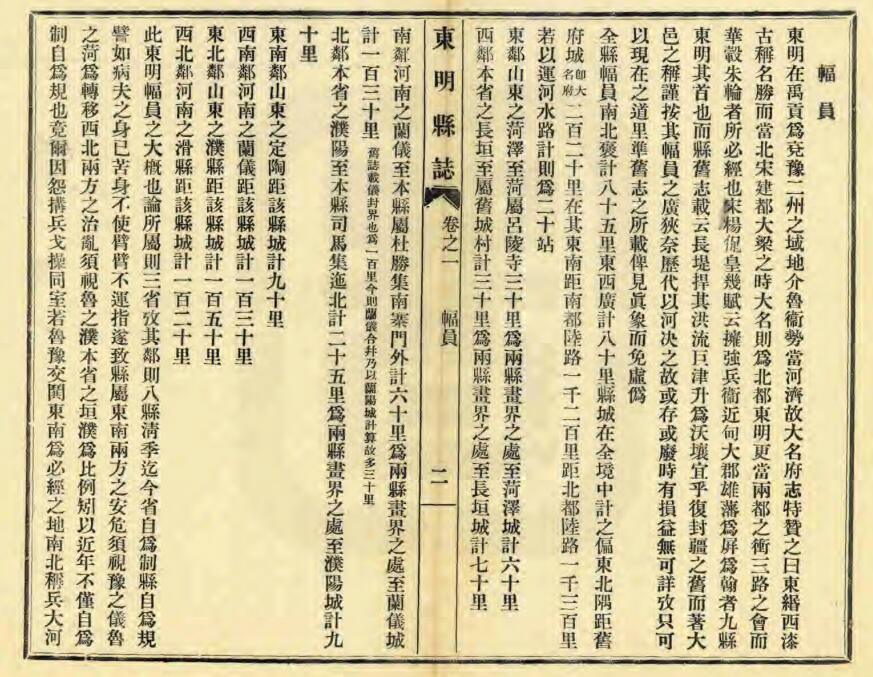 幅員
東明在禹貢爲兗豫二州之域地介魯衞勢當河濟故大名府志特贊之曰東緡西漆
古稱名勝而當北宋建都大梁之時大名則爲北都東明更當兩都之衝三路之會而
華轂朱輪者所必經也宋楊侃皇幾賦云擁強兵衞近甸大郡雄藩爲屏爲翰者九縣
東明其首也而縣舊志載云長堤捍其洪流巨津升爲沃壤宜乎復封疆之舊而著大
邑之稱謹按其幅員之廣狹奈歷代以河決之故或存或廢時有損益無可詳攷只可
以現在之道里準舊志之所載俾見眞象而免虛僞
全縣幅員南北袤計八十五里東西廣計八十里縣城在全境中計之偏東北隅距舊
府城卽大名府二百二十里在其東南距南都陸路一千二百里距北都陸路一千三百里
若以運河水路計則爲二十站
東鄰山東之菏澤至菏屬呂陵寺三十里爲兩縣畫界之處至菏澤城計六十里
西鄰本省之長垣至屬舊城村計三十里爲兩縣畫界之處至長垣城計七十里
東明縣誌 卷之一 幅員 二
南鄰河南之蘭儀至本縣屬杜勝集南寨門外計六十里爲兩縣畫界之處至蘭儀城
計一百三十里舊誌載儀封界也爲一百里今則蘭儀合幷乃以蘭陽城計算故多三十里
北鄰本省之濮陽至本縣司馬集迤北計二十五里爲兩縣畫界之處至濮陽城計九
十里
東南鄰山東之定陶距該縣城計九十里
西南鄰河南之蘭儀距該縣城計一百三十里
東北鄰山東之濮縣距該縣城計一百五十里
西北鄰河南之滑縣距該縣城計一百二十里
此東明幅員之大槪也論所屬則三省攷其鄰則八縣淸季迄今省自爲制縣自爲規
譬如病夫之身已苦身不使臂臂不運指遂致縣屬東南兩方之安危須視豫之儀魯
之菏爲轉移西北兩方之治亂須視魯之濮本省之垣濮爲比例矧以近年不僅自爲
制自爲規也竟爾因怨搆兵戈操同室若魯豫交鬨東南爲必經之地南北稱兵大河